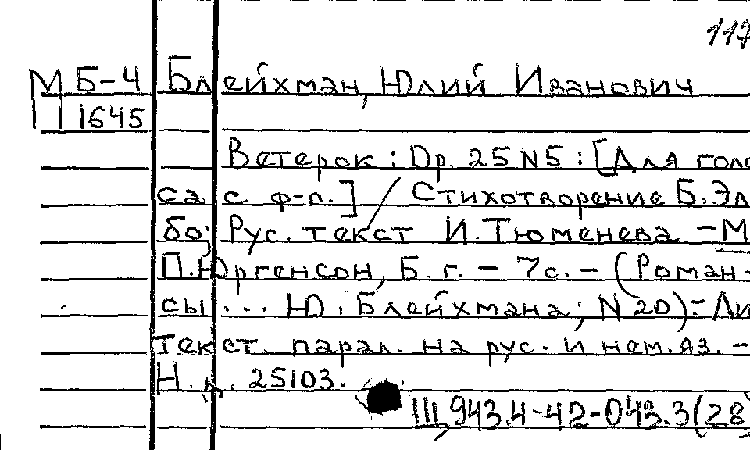 117
М Б-4 Блейхман, Юлий Иванович
1645
Ветерок : Op. 25 N5 : [Для голо
са с ф-п.] / Стихотворение Б. Эль
бо; Рус. текст И. Тюменева. - М
П. Юргенсон, Б. г. - 7с. - (Роман-
сы ... Ю. Блейхмана; N 20). - Ли
текст. парал. на рус. и нем. яз. -
Н. д. 25103.
Щ943.4-42-043.3(28